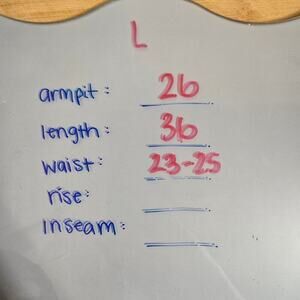 L
armpit: 26
length: 36
waist: 23-25
rise:
inseam: